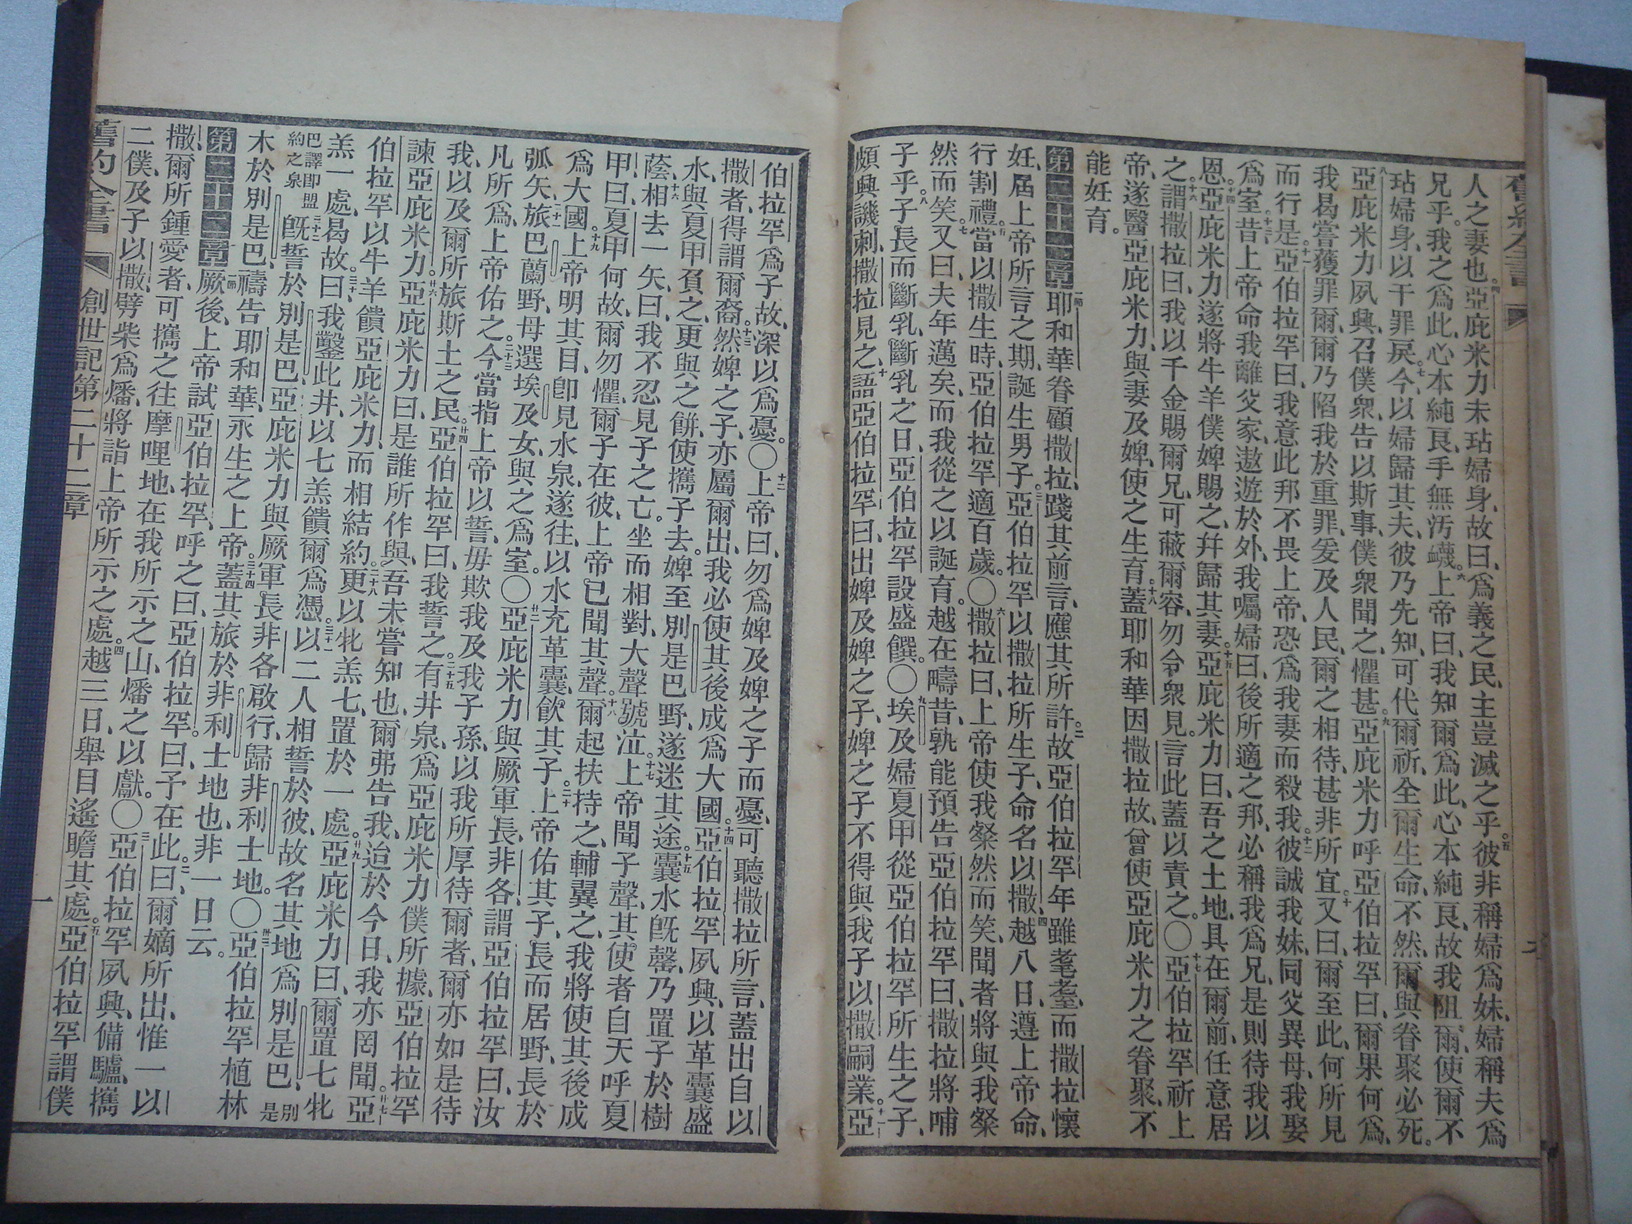 人之妻也亞庇米力未玷婦身故曰爲義之民主豈滅之乎彼非稱婦爲妹婦稱夫爲
兄乎我之爲此心本純良手無汚衊上帝曰我知爾爲此心本純良故我阻爾使爾不
玷婦身以干罪戾今以婦歸其夫彼乃先知可代爾祈全爾生命不然爾與眷聚必死
亞庇米力夙興召僕衆告以斯事僕衆聞之懼甚亞庇米力呼亞伯拉罕曰爾果何爲
我曷嘗獲罪爾爾乃陷我於重罪爰及人民爾之相待甚非所宜又曰爾至此何所見
而行是亞伯拉罕曰我意此邦不畏上帝恐爲我妻而殺我彼誠我妹同父異母我娶
爲室昔上帝命我離父家遨遊於外我囑婦曰後所適之邦必稱我爲兄是則待我以
恩亞庇米力遂將牛羊僕婢賜之幷歸其妻亞庇米力曰吾之土地具在爾前任意居
之謂撒拉曰我以千金賜爾兄可蔽爾容勿令衆見言此蓋以責之○亞伯拉罕祈上
帝遂醫亞庇米力與妻及婢使之生育蓋耶和華因撒拉故曾使亞庇米力之眷聚不
能妊育
第二十一章耶和華眷顧撒拉踐其前言應其所許故亞伯拉罕年雖耄耋而撒拉懷
妊屆上帝所言之期誕生男子亞伯拉罕以撒拉所生子命名以撒越八日遵上帝命
行割禮當以撒生時亞伯拉罕適百歲○撒拉曰上帝使我粲然而笑聞者將與我粲
然而笑又曰夫年邁矣而我從之以誕育越在疇昔孰能預告亞伯拉罕曰撒拉將哺
子乎子長而斷乳斷乳之日亞伯拉罕設盛饌○埃及婦夏甲從亞伯拉罕所生之子
頗興譏刺撒拉見之語亞伯拉罕曰出婢及婢之子婢之子不得與我子以撒嗣業亞
伯拉罕爲子故深以爲憂○上帝曰勿爲婢及婢之子而憂可聽撒拉所言蓋出自以
撒者得謂爾裔然婢之子亦屬爾出我必使其後成爲大國亞伯拉罕夙興以革囊盛
水與夏甲負之更與之餅使攜子去婢至別是巴野遂迷其途囊水旣罄乃置子於樹
蔭相去一矢曰我不忍見子之亡坐而相對大聲號泣上帝聞子聲其使者自天呼夏
甲曰夏甲何故爾勿懼爾子在彼上帝已聞其聲爾起扶持之輔翼之我將使其後成
爲大國上帝明其目卽見水泉遂往以水充革囊飮其子上帝佑其子長而居野長於
弧矢旅巴蘭野母選埃及女與之爲室○亞庇米力與厥軍長非各謂亞伯拉罕曰汝
凡所爲上帝佑之今當指上帝以誓毋欺我及我子孫以我所厚待爾者爾亦如是待
我以及爾所旅斯土之民亞伯拉罕曰我誓之有井泉爲亞庇米力僕所據亞伯拉罕
諫亞庇米力亞庇米力曰是誰所作與吾未嘗知也爾弗告我迨於今日我亦罔聞亞
伯拉罕以牛羊饋亞庇米力而相結約更以牝羔七置於一處亞庇米力曰爾置七牝
羔一處曷故曰我鑿此井以七羔饋爾爲憑以二人相誓於彼故名其地爲別是巴別是
巴譯卽盟約之泉旣誓於別是巴亞庇米力與厥軍長非各啟行歸非利士地○亞伯拉罕植林
木於別是巴禱告耶和華永生之上帝蓋其旅於非利士地也非一日云
第二十二章厥後上帝試亞伯拉罕呼之曰亞伯拉罕曰予在此曰爾嫡所出惟一以
撒爾所鍾愛者可攜之往摩哩地在我所示之山燔之以獻○亞伯拉罕夙興備驢攜
二僕及子以撒劈柴爲燔將詣上帝所示之處越三日舉目遙瞻其處亞伯拉罕謂僕
舊約全書 創世記第二十二章